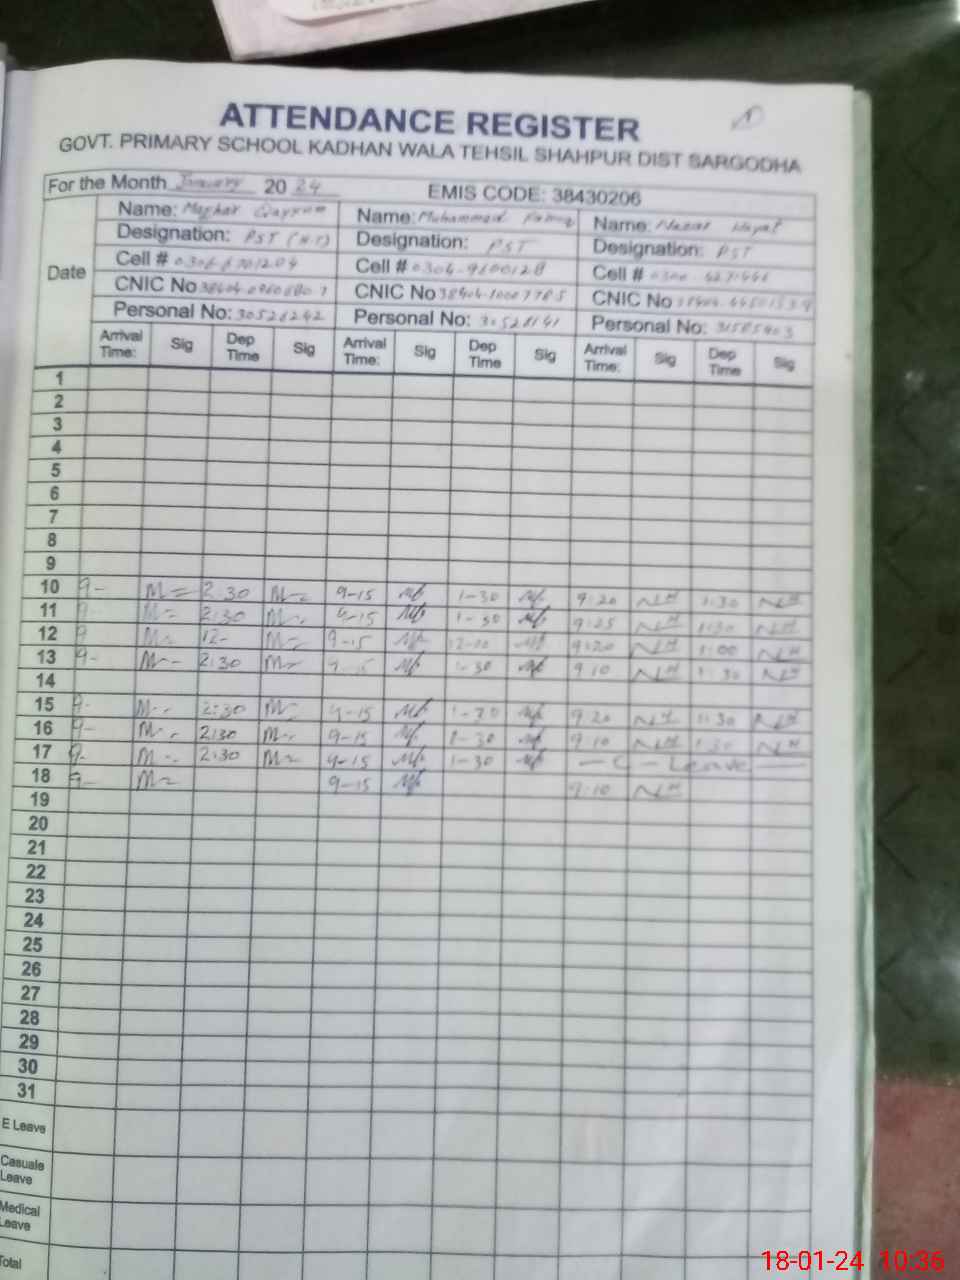 ATTENDANCE REGISTER
GOVT. PRIMARY SCHOOL KADHAN WALA TEHSIL SHAHPUR DIST SARGODHA
For the Month January 2024 EMIS CODE: 38430206
Date
Name: Mazhar Qayyum Name: Muhammad Name: Nazar Hayat
Designation: PST Designation: PST Designation: PST
Cell # Cell # 0304-9600128 Cell #
CNIC No CNIC No CNIC No
Personal No: 30526242 Personal No: 30528141 Personal No: 31585403
Arrival Time: Sig Dep Time Sig Arrival Time: Sig Dep Time Sig Arrival Time: Sig Dep Time Sig
1
2
3
4
5
6
7
8
9
10 9- M 2:30 M 9-15 1-30 9:20 NH 1:30 NH
11 9 M 2:30 M 9-15 1-30 9:25 NH 1:30 NH
12 9 M 12- M 9-15 12-00 9:20 NH 1:00 NH
13 9- M 2:30 M 9-15 1-30 9:10 NH 1:30 NH
14
15 9- M 2:30 M 9-15 1-30 9:20 NH 1:30 NH
16 9- M 2:30 M 9-15 1-30 9:10 NH 1:30 NH
17 9- M 2:30 M 9-15 1-30 - C - Leave
18 9- M 9-15 9:10 NH
19
20
21
22
23
24
25
26
27
28
29
30
31
E Leave
Casuale Leave
Medical Leave
Total
18-01-24 10:36